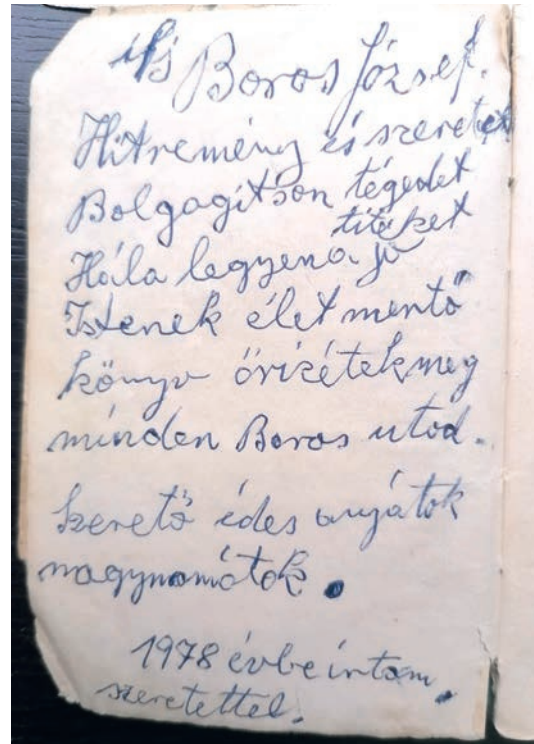 ifj Boros József.
Hitremény és szeretet
Bolgagítson tégedet
titeket
Hála legyen a jó
Istenek élet mentő
könyv őrizétek meg
minden Boros utod.
Szerető édes anyátok
nagynamátok.
1978 évbe írtam
szeretettel.